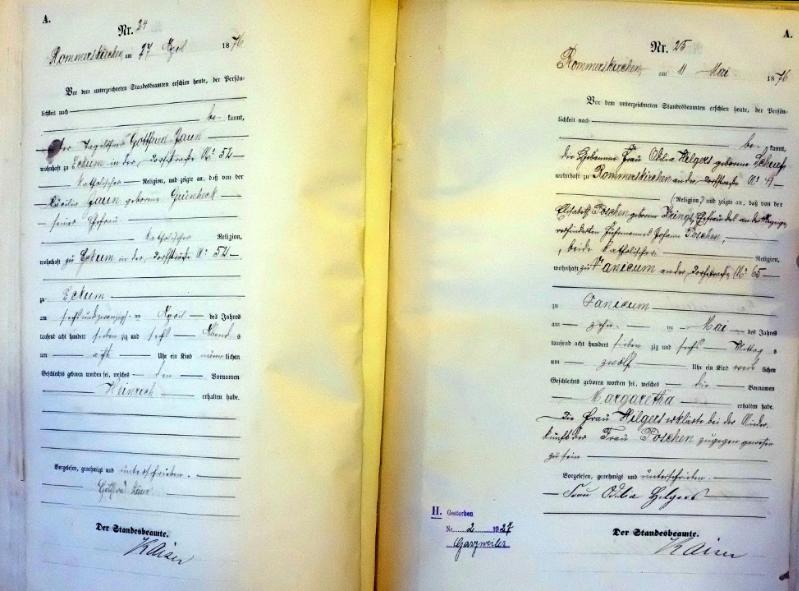 A.
Nr. 24
Rommerskirchen am 27 April 1876
Vor dem unterzeichneten Standesbeamten erschien heute, der Persön-
lichkeit nach
be- kannt,
der Tagelöhner Gottfried
wohnhaft zu Eckum in der Dorfstraße No 52
katholischer Religion, und zeigte an, daß von der
geborene
seiner Ehefrau
katholischer Religion,
wohnhaft zu Eckum in der Dorfstraße No 52
zu Eckum
am sechsundzwanzigsten April des Jahres
tausend acht hundert siebenzig und sechs Abends
um acht Uhr ein Kind männlichen
Geschlechts geboren worden sei, welches den Vornamen
Heinrich
erhalten habe.
Vorgelesen, genehmigt und unterschrieben.
Gottfried
Der Standesbeamte.
Kaiser
A.
Nr. 25
Rommerskirchen am 11 Mai 1876
Vor dem unterzeichneten Standesbeamten erschien heute, der Persön-
lichkeit nach
be- kannt,
die Hebamme Frau Odilia Hilgers geborene
wohnhaft zu Rommerskirchen an der Dorfstraße No
(Religion,) und zeigte an, daß von der
Elisabeth Poschen geborene Ehefrau des
verhinderten Johann Poschen,
beide katholischer Religion,
wohnhaft zu Vanicum an der Dorfstraße No 65
zu Vanicum
am zehn ten Mai des Jahres
tausend acht hundert siebenzig und sechs Mittags
um zwölf Uhr ein Kind weiblichen
Geschlechts geboren worden sei, welches die Vornamen
Margaretha
erhalten habe.
Die Frau Hilgers erklärte bei der Nieder-
kunft der Frau Poschen zugegen gewesen
zu sein
Vorgelesen, genehmigt und unterschrieben.
Frau Odilia Hilgers
H. Gestorben
Nr. 2 1927
Garzweiler
Der Standesbeamte.
Kaiser